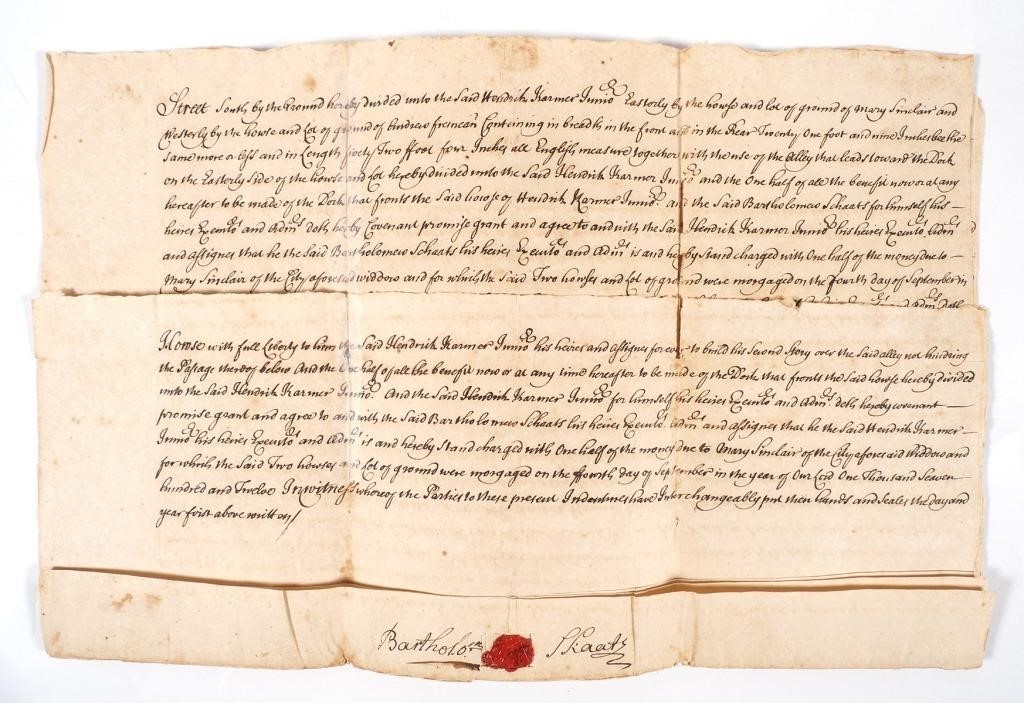 Street South by the Ground hereby divided unto the Said Hendrik Karmer Junior Easterly by the howse and Lot of ground of Mary Sinclair and
Westerly by the howse and Lot of ground of Andrew fresneau Conteining in breadth in the front and in the Rear Twenty One foot and nine Inches bee the
Same more or less and in Length fivety Two ffoot four Inches all English measure together with the use of the Alley that leads toward the Dock
on the Easterly Side of the howse and Lot hereby divided unto the Said Hendrik Karmer Junio.r and the One half of all the benefit now or at any
hereafter to be made of the Dock that fronts the Said howse of Hendrik Karmer Junio.r And the Said Bartholomew Schaats for himself his
heires Executo.rs and Adm.rs doth hereby Covenant promise grant and agree to and with the Said Hendrik Karmer Junio.r his heires Executo.rs Adm.rs
and assignes that he the Said Bartholomew Schaats his heires Executo.rs and Adm.rs is and hereby Stand charged with One half of the money due to
Mary Sinclair of the City aforesaid widdow and for which the Said Two howses and Lot of ground were morgaged on the fourth day of September in
Adm.rs doth
Howse with full Liberty to him the Said Hendrik Karmer Junio.r his heires and assignes for ever to build his Second Story over the Said alley not hindring
the Passage thereof below And the One half of all the benefit now or at any time hereafter to be made of the Dock that fronts the Said howse hereby divided
unto the Said Hendrik Karmer Junio.r And the Said Hendrik Karmer Junio.r for himself his heires Executo.rs and Adm.rs doth hereby covenant
promise grant and agree to and with the Said Bartholomew Schaats his heires Executo.rs Adm.rs and assignes that he the Said Hendrik Karmer
Junio.r his heires Executo.rs and Adm.rs is and hereby Stand charged with One half of the money due to Mary Sinclair of the City aforesaid Widdow and
for which the Said Two howses and Lot of ground were morgaged on the ffourth day of September in the year of our Lord One Thousand Seaven
hundred and Twelve In witness whereof the Parties to these present Indentures have Interchangeably put their hands and Seales the day and
year first above written/
Bartholo.m Skaats